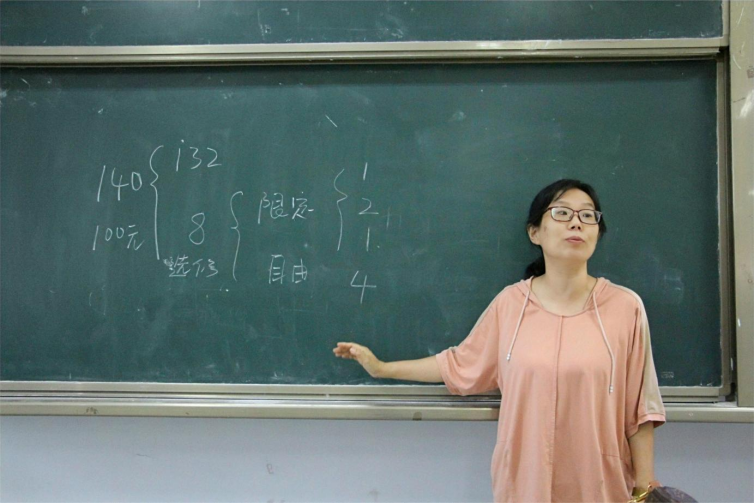 140 { 132
100元
8 { 限定 { 1
2
1
选修
自由 4